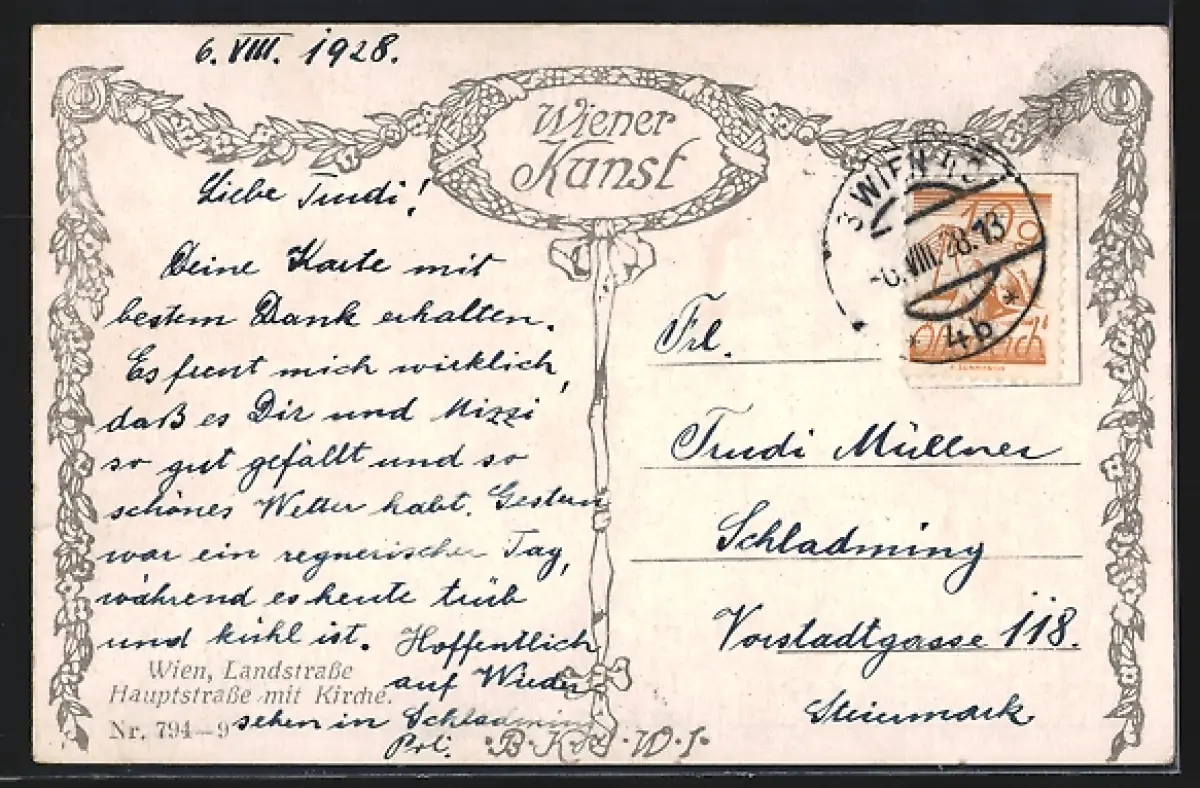 6. VIII. 1928.
Wiener
Kunst
Liebe Trudi!
Deine Karte mit
bestem Dank erhalten.
Es freut mich wirklich,
daß es Dir und Mizzi
so gut gefällt und so
schönes Wetter habt. Gestern
war ein regnerischer Tag,
während es heute trüb
und kühl ist. Hoffentlich
auf Wieder
sehen in Schladming
Wien, Landstraße
Hauptstraße mit Kirche.
Nr. 794-9
B. K. W. I.
3 WIEN 40
-6. VIII. 28. 13
* 4b *
Frl.
Trudi Müllner
Schladming
Vorstadtgasse 118.
Steiermark